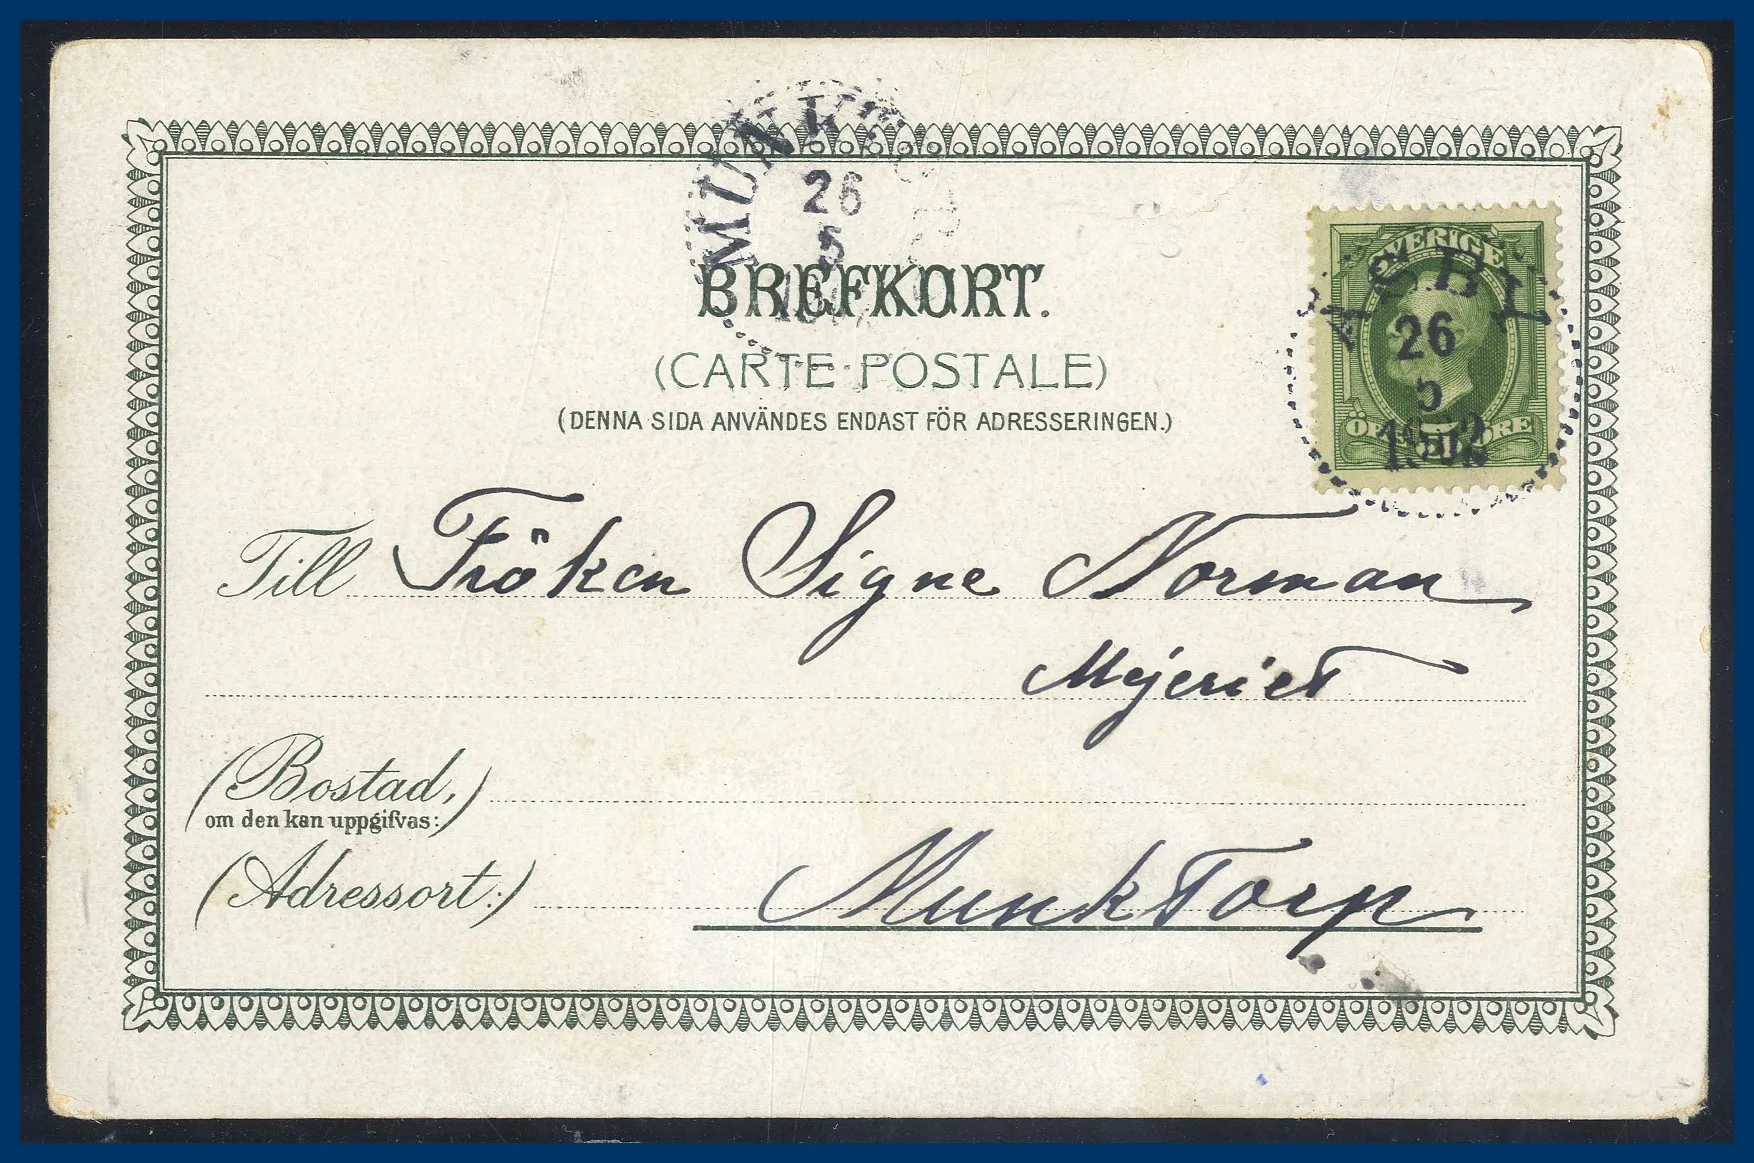 MUNKTORP
26
5
BREFKORT.
(CARTE POSTALE)
(DENNA SIDA ANVÄNDES ENDAST FÖR ADRESSERINGEN.)
SVERIGE
ÖRE 5 ÖRE
26
5
1902
Till Fröken Signe Norman
Mejeriet
(Bostad,)
om den kan uppgifvas:
(Adressort:) Munktorp